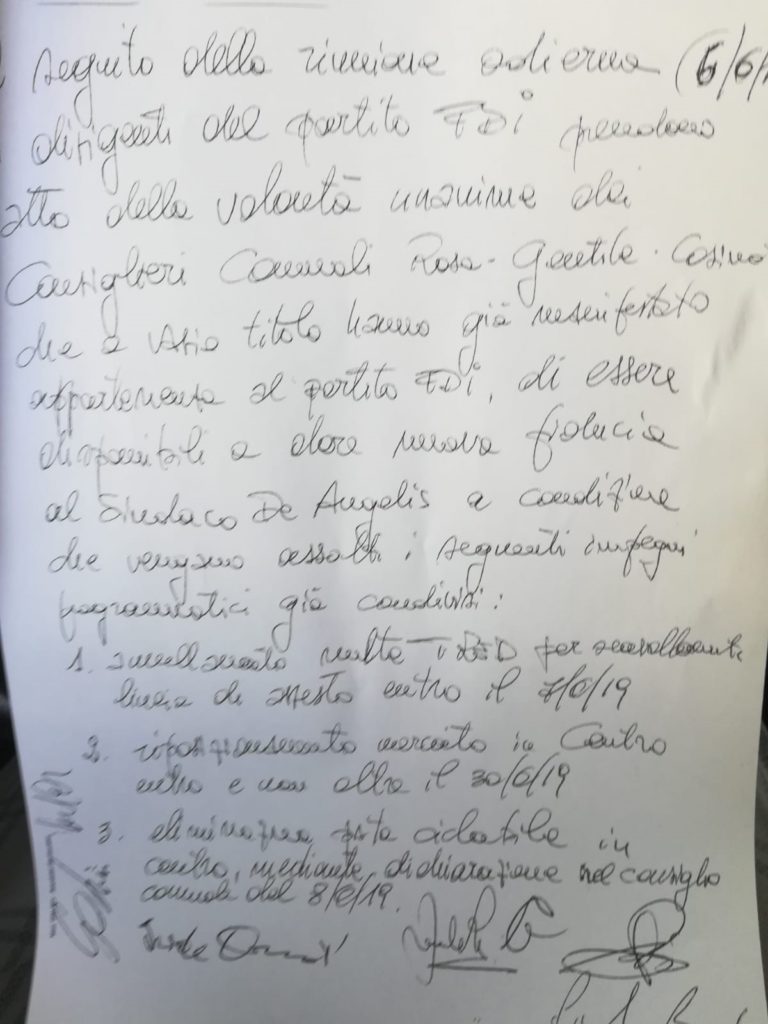 seguito della riunione odierna (6/6/1
dirigenti del partito FDI prendono
atto della volontà unanime dei
Consiglieri Comunali Rosa - Gentile - Cosimo
che a vario titolo hanno già manifestato
appartenenza al partito FDI, di essere
disponibili a dare nuova fiducia
al Sindaco De Angelis a condizione
che vengano assolti i seguenti impegni
programmatici già condivisi:
1. annullamento multe T-RED per
linea di arresto entro il 7/6/19
2. riposizionamento mercato in Centro
entro e non oltre il 30/6/19
3. eliminazione pista ciclabile in
centro, mediante dichiarazione nel consiglio
comunale del 8/6/19.